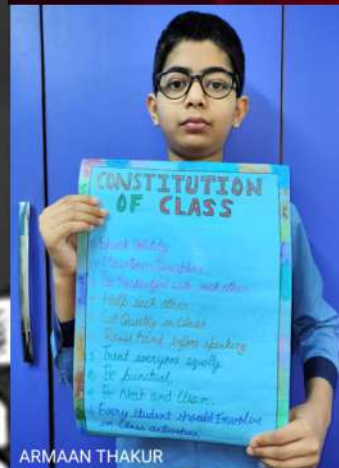 CONSTITUTION
OF CLASS
Maintain Discipline
Be Respectful with each other
Help each other
Sit Quietly in Class
Raise hand before speaking
Treat everyone equally
Be punctual
Be Neat and Clean
Every student should Involve
in Class activities
ARMAAN THAKUR